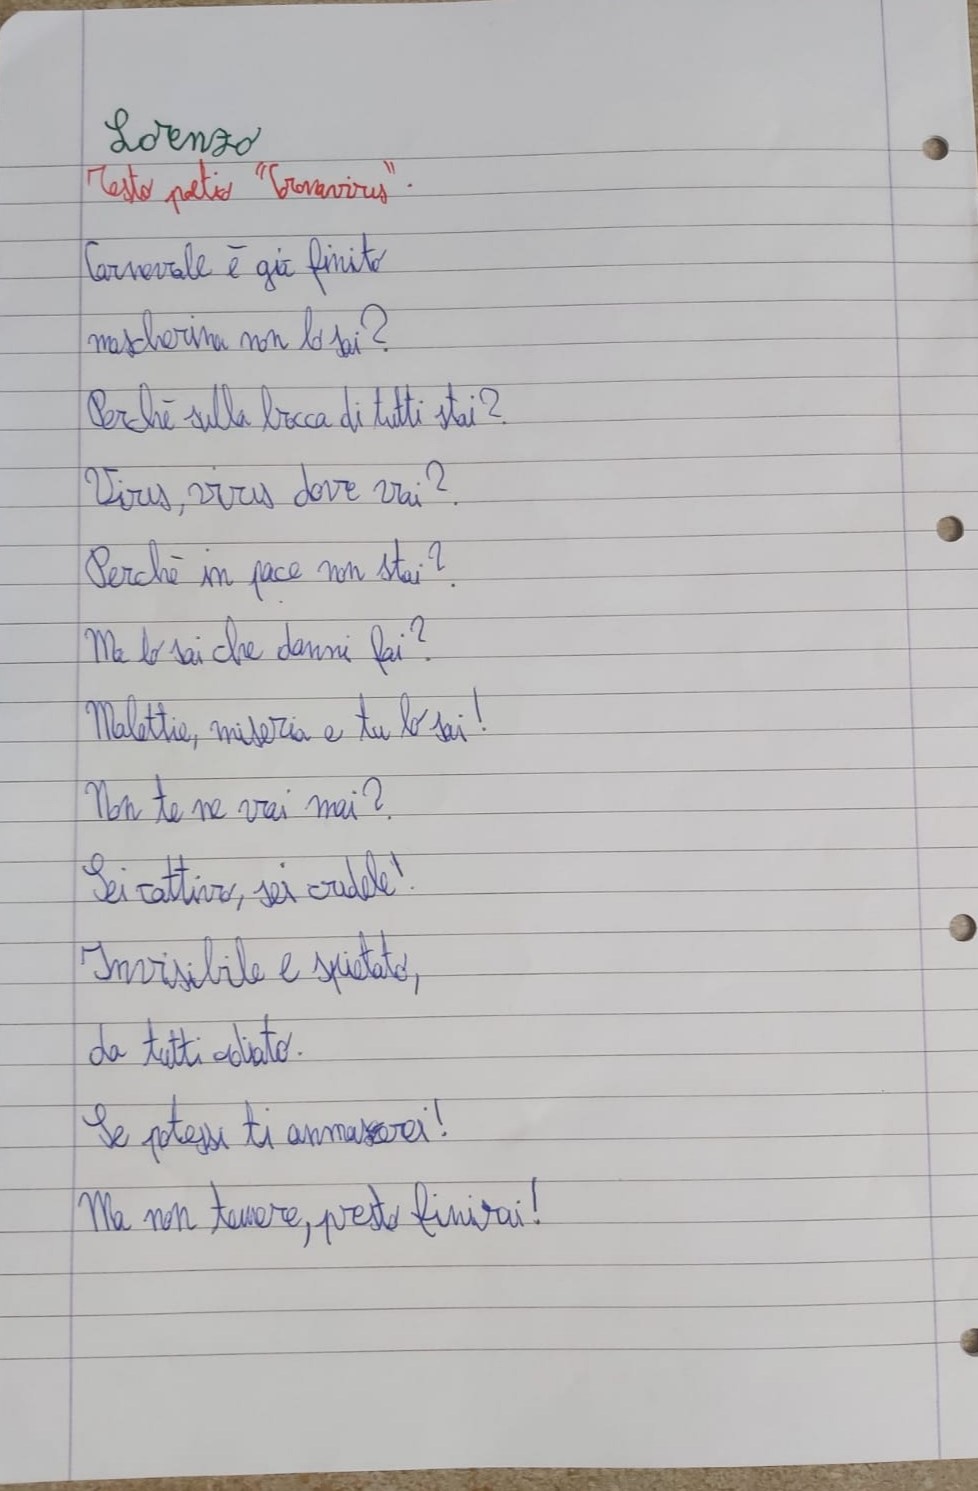 Lorenzo
Testo poetico "Coronavirus".
Carnevale è già finito
mascherina non lo sai?
Perchè sulla bocca di tutti stai?
Virus, virus dove vai?
Perchè in pace non stai?
Ma lo sai che danni fai?
Malattie, miseria e tu lo sai!
Non te ne vai mai?
Sei cattivo, sei crudele!
Invisibile e spietato,
da tutti odiato.
Se potessi ti
Ma non temere, presto finirai!